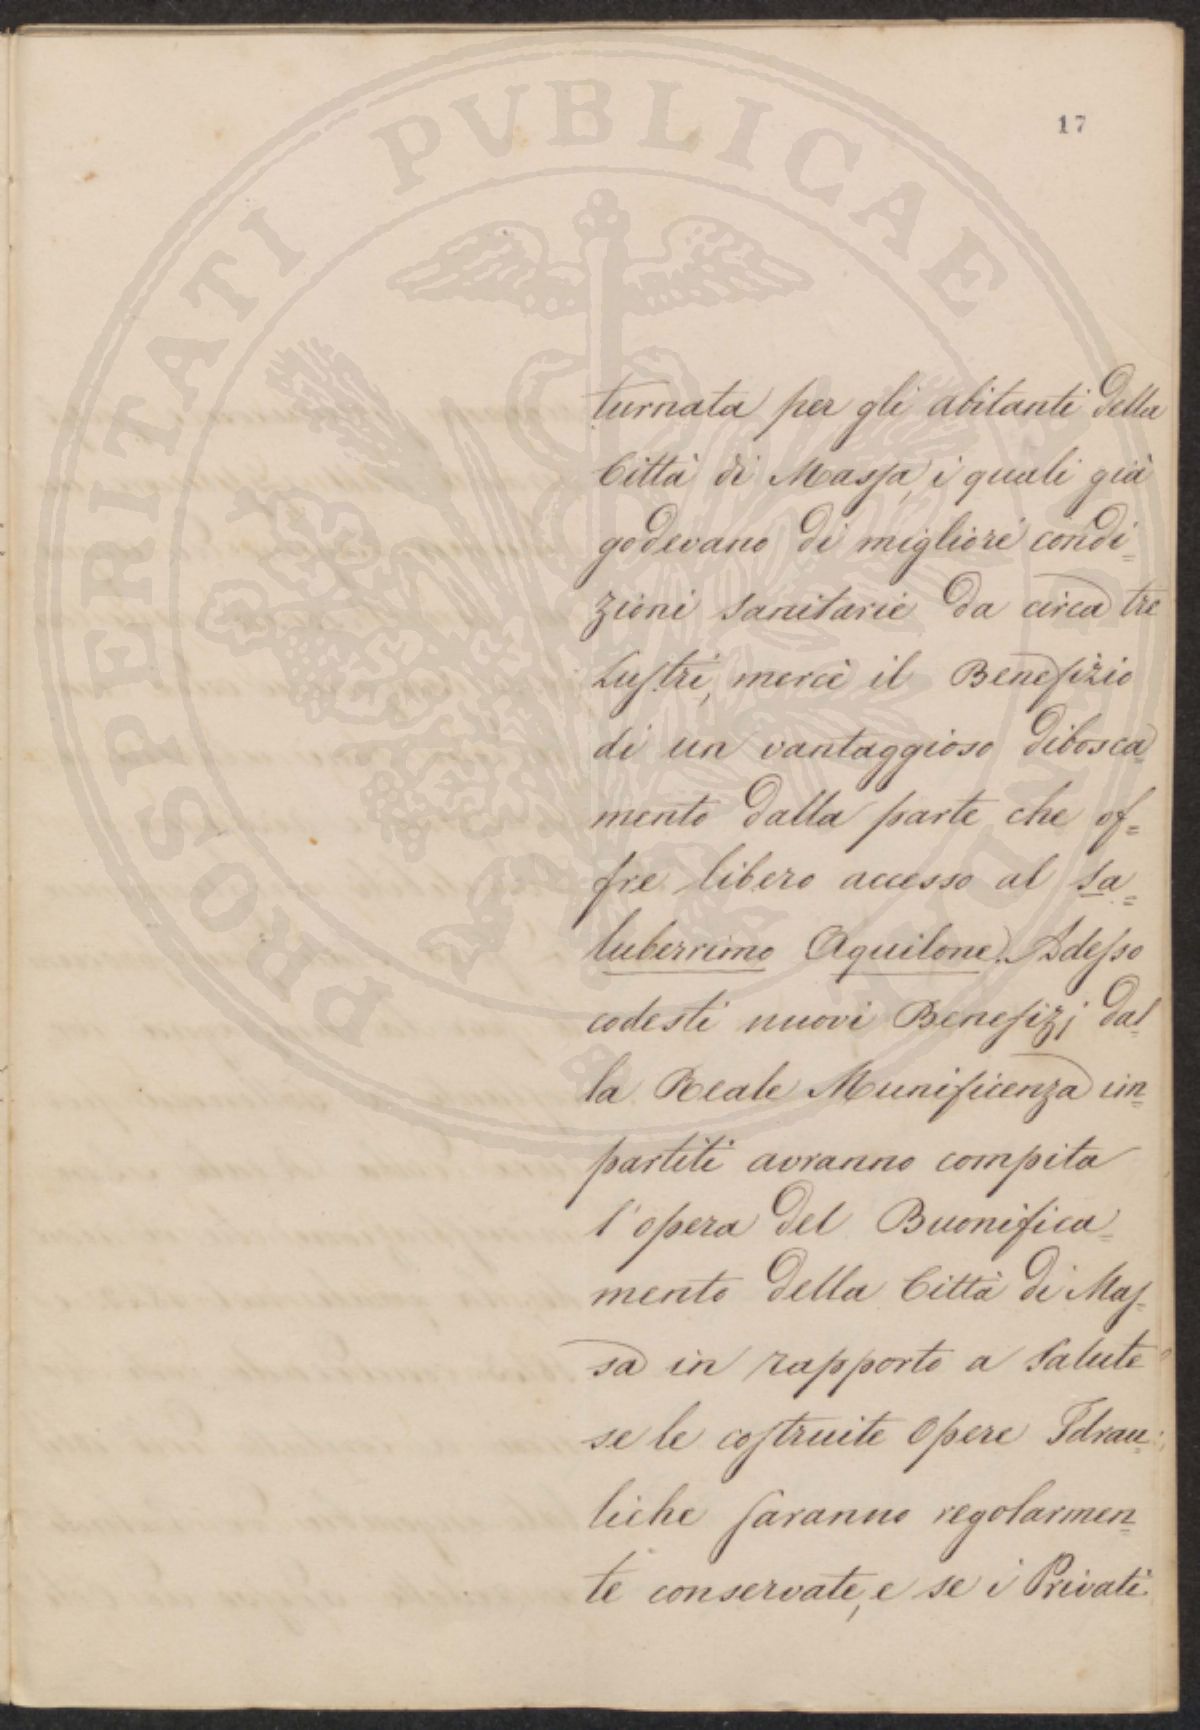 PROSPERITATI PUBLICAE
17
turnata per gli abitanti della
Città di Massa, i quali già
godevano di migliori condi-
zioni sanitarie da circa tre
Lustri, mercè il Benefizio
di un vantaggioso disbosca=
mento dalla parte che of=
fre libero accesso al sa=
luberrimo Aquilone. Adesso
codesti nuovi Benefizj dal-
la Reale Munificenza im=
partiti avranno compita
l'opera del Buonifica=
mento della Città di Mas-
sa in rapporto a Salute
se le costruite Opere Idrau=
liche saranno regolarmen=
te conservate, e se i Privati